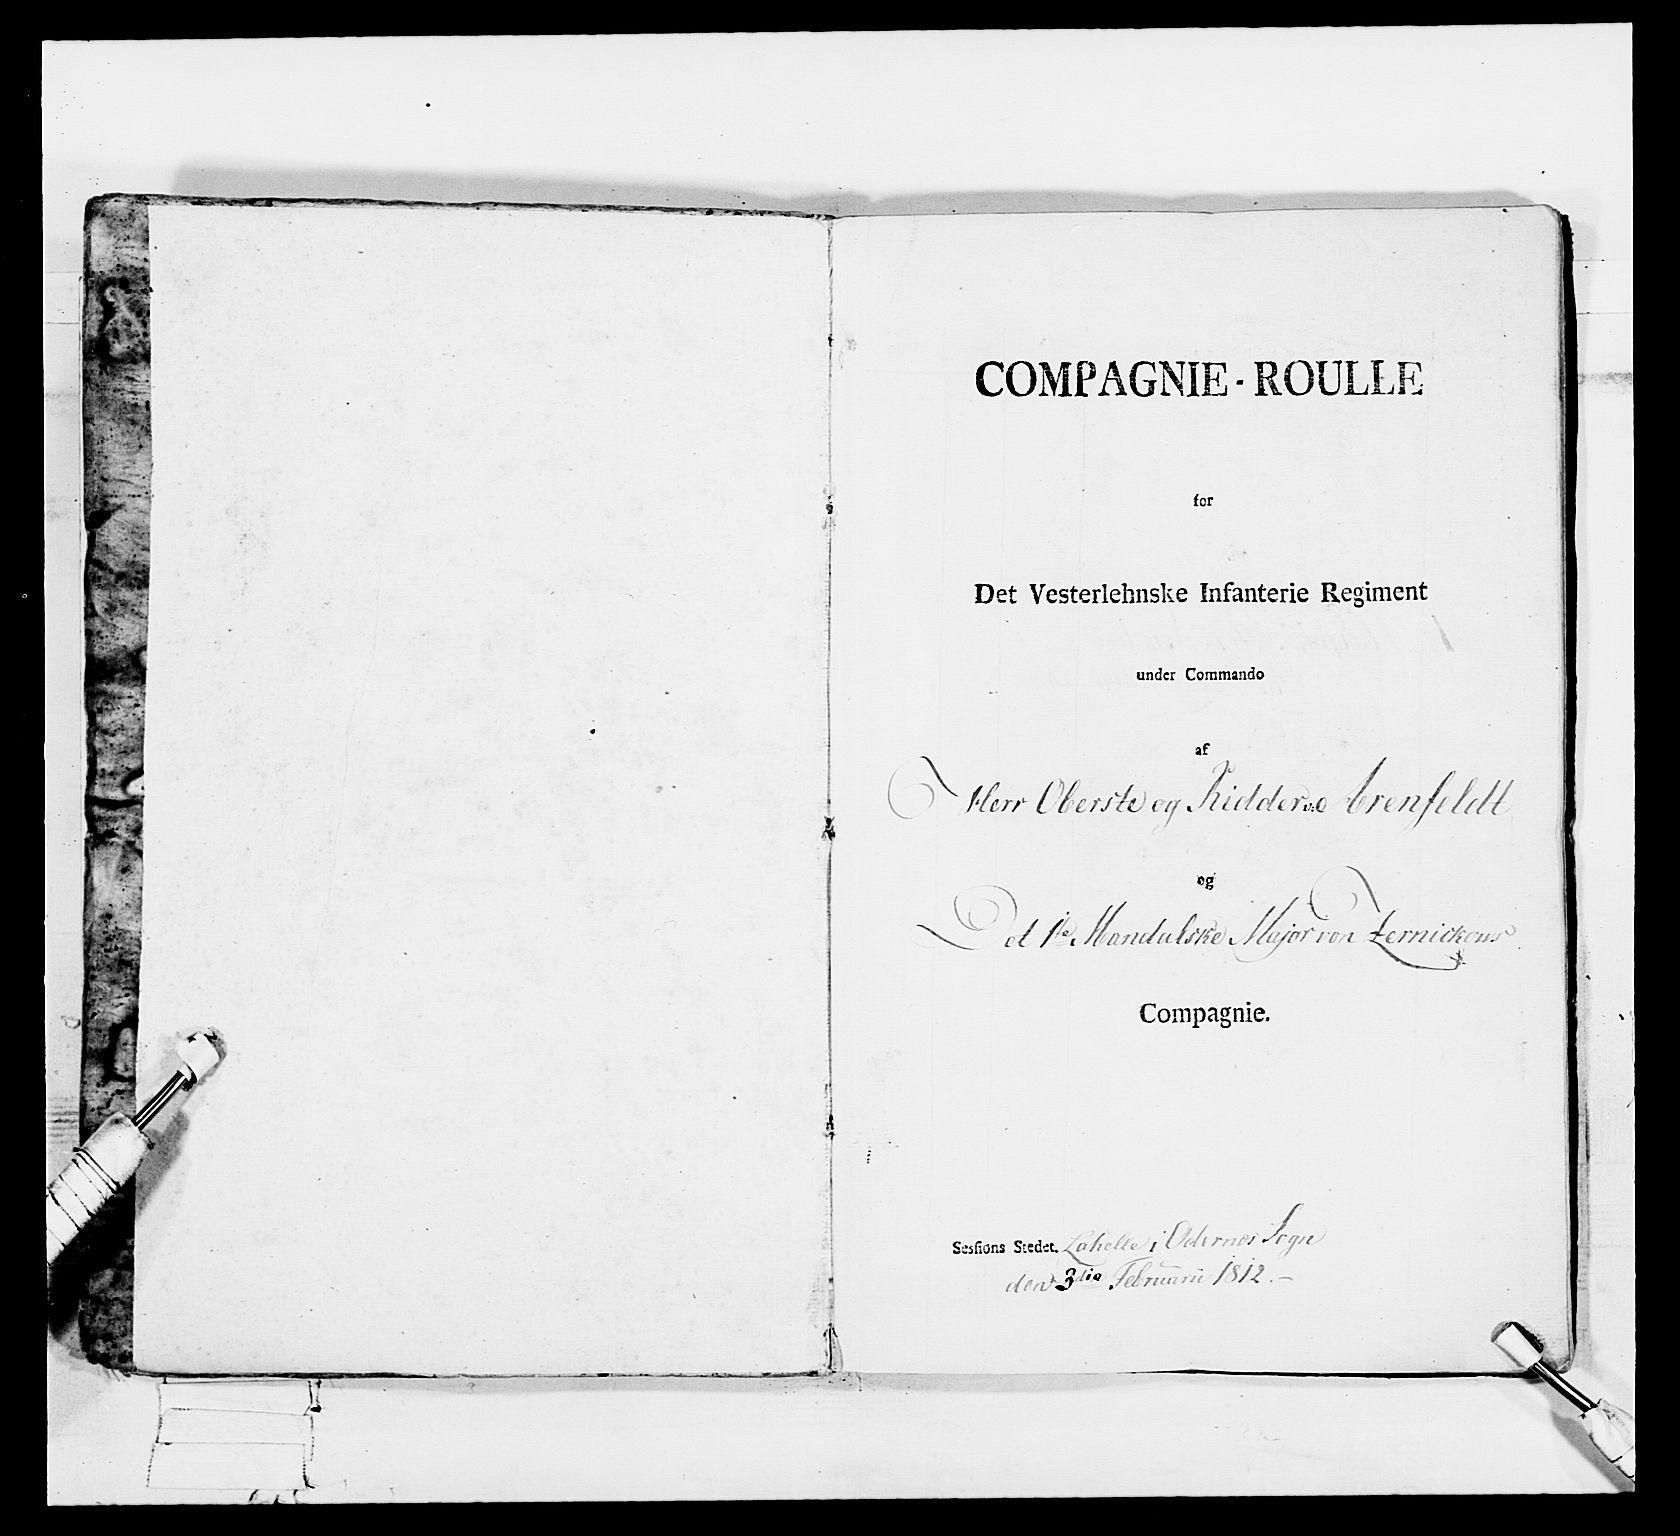 COMPAGNIE-ROULLE
for
Det Vesterlehnske Infanterie Regiment
under Commando
af
Herr Oberste og Ridder v: Arenfeldt
og
Det 1te Mandalske Major von Zernickows
Compagnie.
Sessions Stedet. Lohelle i Odernes Sogn
den 3die Februarii 1812.